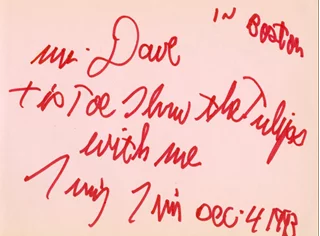 IN BOSTON
Mr. Dave
tip Toe Thru the Tulips
with me
Tiny Tim DEC. 4 1993